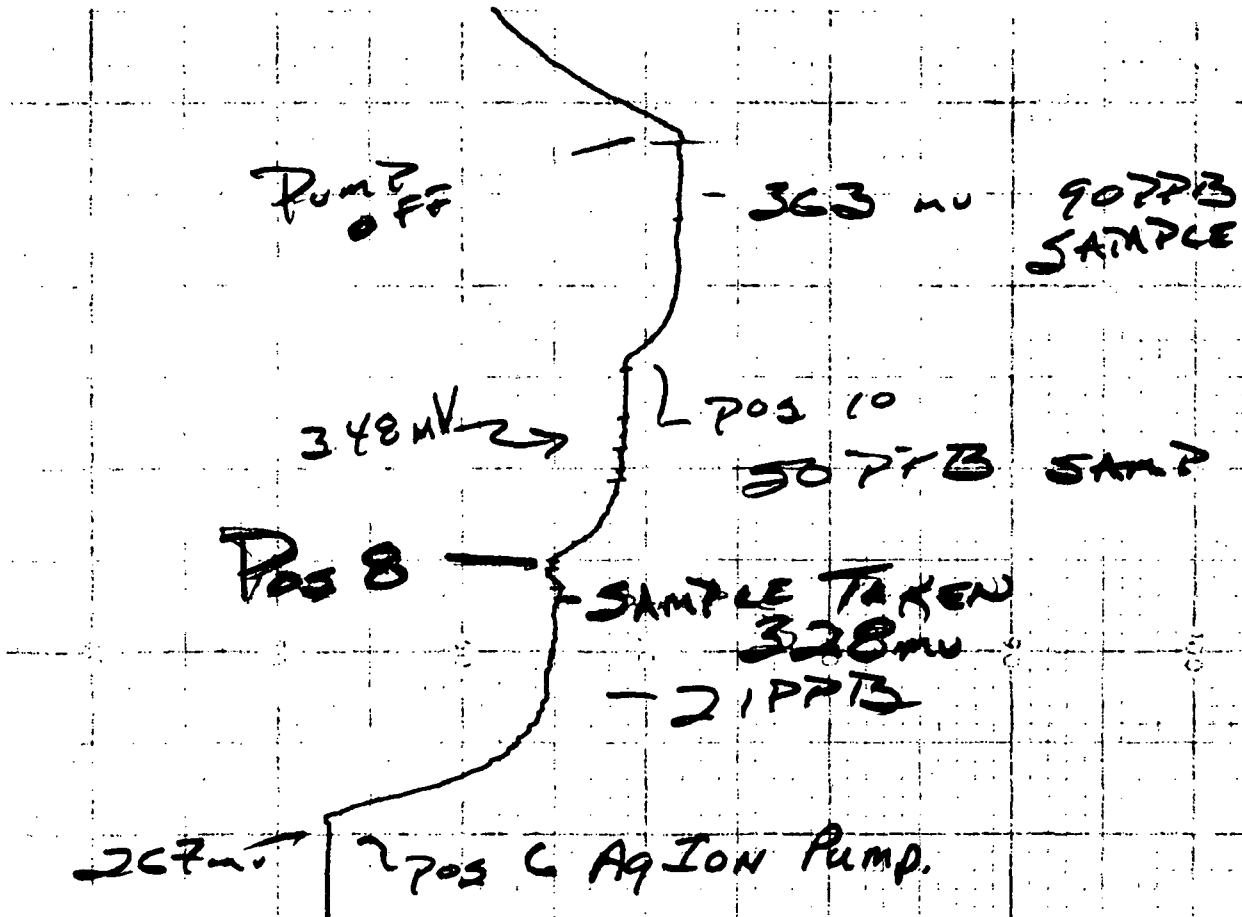 PUMP
OFF
363 mv 90PPB
SAMPLE
348 mV
POS 10
50 PPB SAMP
Pos 8
SAMPLE TAKEN
328mv
21PPB
267mv
POS 6 Ag ION Pump.